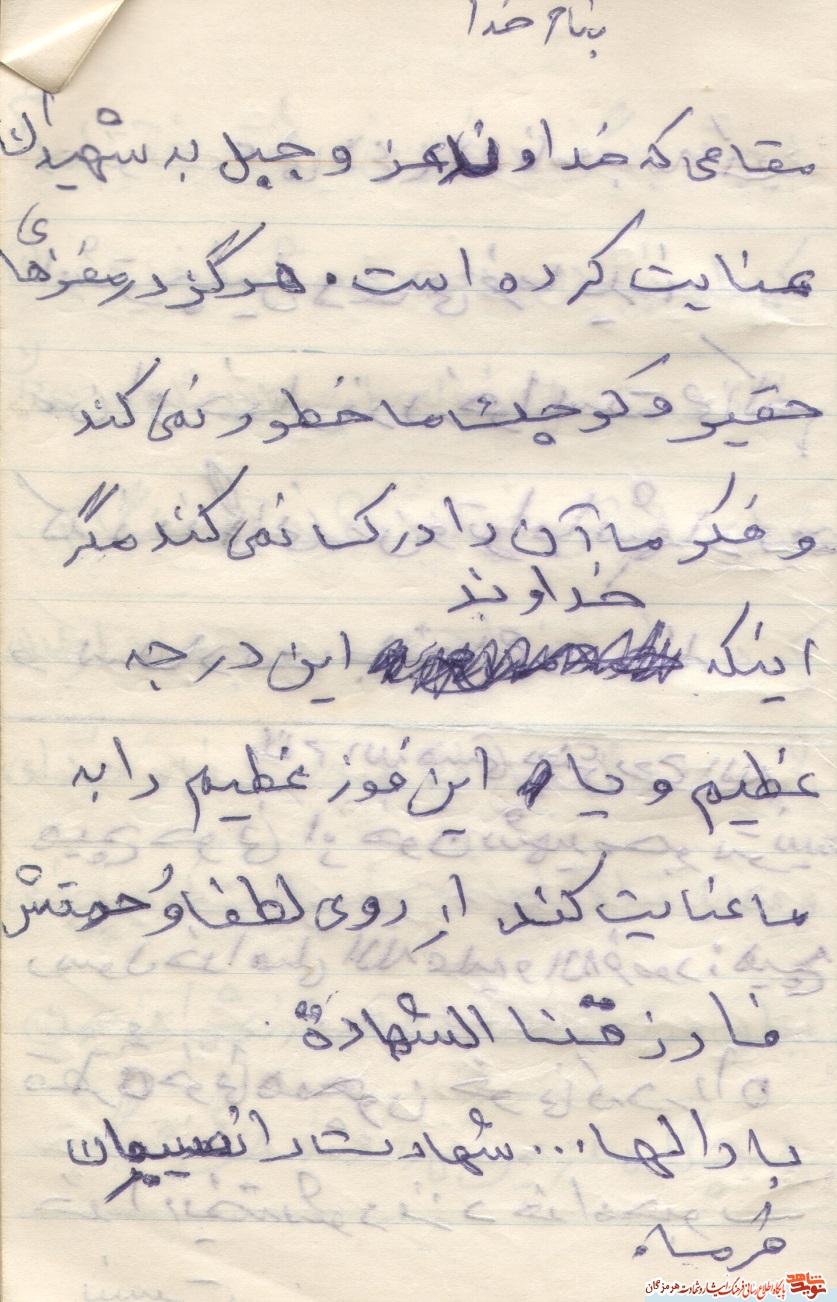 بنام خدا
مقامی که خداوند عز و جل به شهیدان
عنایت کرده است. هرگز در مغزهای
حقیر و کوچک ما خطور نمی کند
و فکر ما آن را درک نمی کند مگر
خداوند
اینکه این درجه
عظیم و یا این فوز عظیم را به
ما عنایت کند از روی لطف و رحمتش
فارزقنا الشهادة
بارالها... شهادت را نصیبمان
فرما.
پایگاه اطلاع رسانی فرهنگ ایثار و شهادت هرمزگان
نوید شاهد